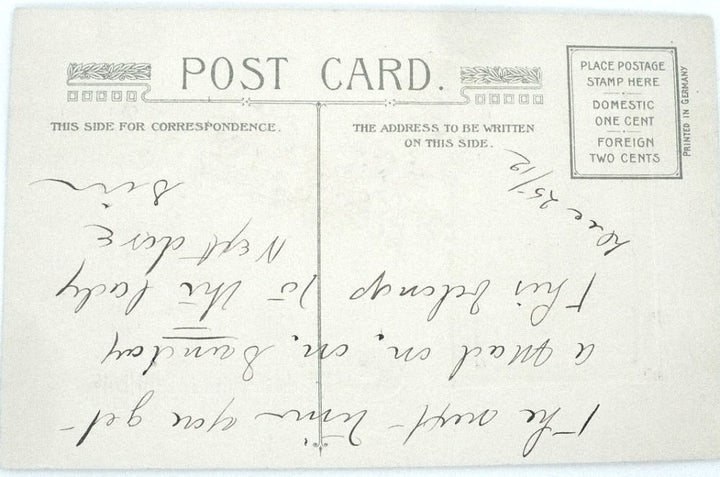 POST CARD.
THIS SIDE FOR CORRESPONDENCE.
THE ADDRESS TO BE WRITTEN
ON THIS SIDE.
PLACE POSTAGE
STAMP HERE
DOMESTIC
ONE CENT
FOREIGN
TWO CENTS
PRINTED IN GERMANY
The next time you get
a Mad on, on, Sunday
This belongs to the lady
Next dore
Dec 25/12